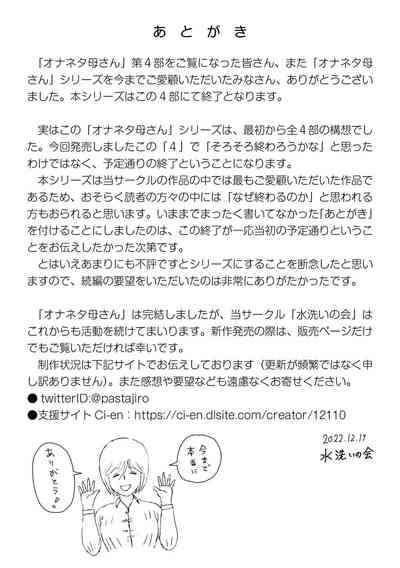 あとがき
「オナネタ母さん」第４部をご覧になった皆さん、また「オナネタ母
さん」シリーズを今までご愛顧いただいたみなさん、ありがとうござい
ました。本シリーズはこの４部にて終了となります。
実はこの「オナネタ母さん」シリーズは、最初から全４部の構想でし
た。今回発売しましたこの「４」で「そろそろ終わろうかな」と思った
わけではなく、予定通りの終了ということになります。
本シリーズは当サークルの作品の中では最もご愛顧いただいた作品で
あるため、おそらく読者の方々の中には「なぜ終わるのか」と思われる
方もおられると思います。いままでまったく書いてなかった「あとがき」
を付けることにしましたのは、この終了が一応当初の予定通りというこ
とをお伝えしたかった次第です。
とはいえあまりにも不評ですとシリーズにすることを断念したと思い
ますので、続編の要望をいただいたのは非常にありがたかったです。
「オナネタ母さん」は完結しましたが、当サークル「水洗いの会」は
これからも活動を続けてまいります。新作発売の際は、販売ページだけ
でもご覧いただければ幸いです。
制作状況は下記サイトでお伝えしております（更新が頻繁ではなく申
し訳ありません）。また感想や要望なども遠慮なくお寄せください。
●twitterID:@pastajiro
●支援サイトCi-en：https://ci-en.dlsite.com/creator/12110
2022.12.17
水洗いの会
今まで
本当に
ありがとう!!